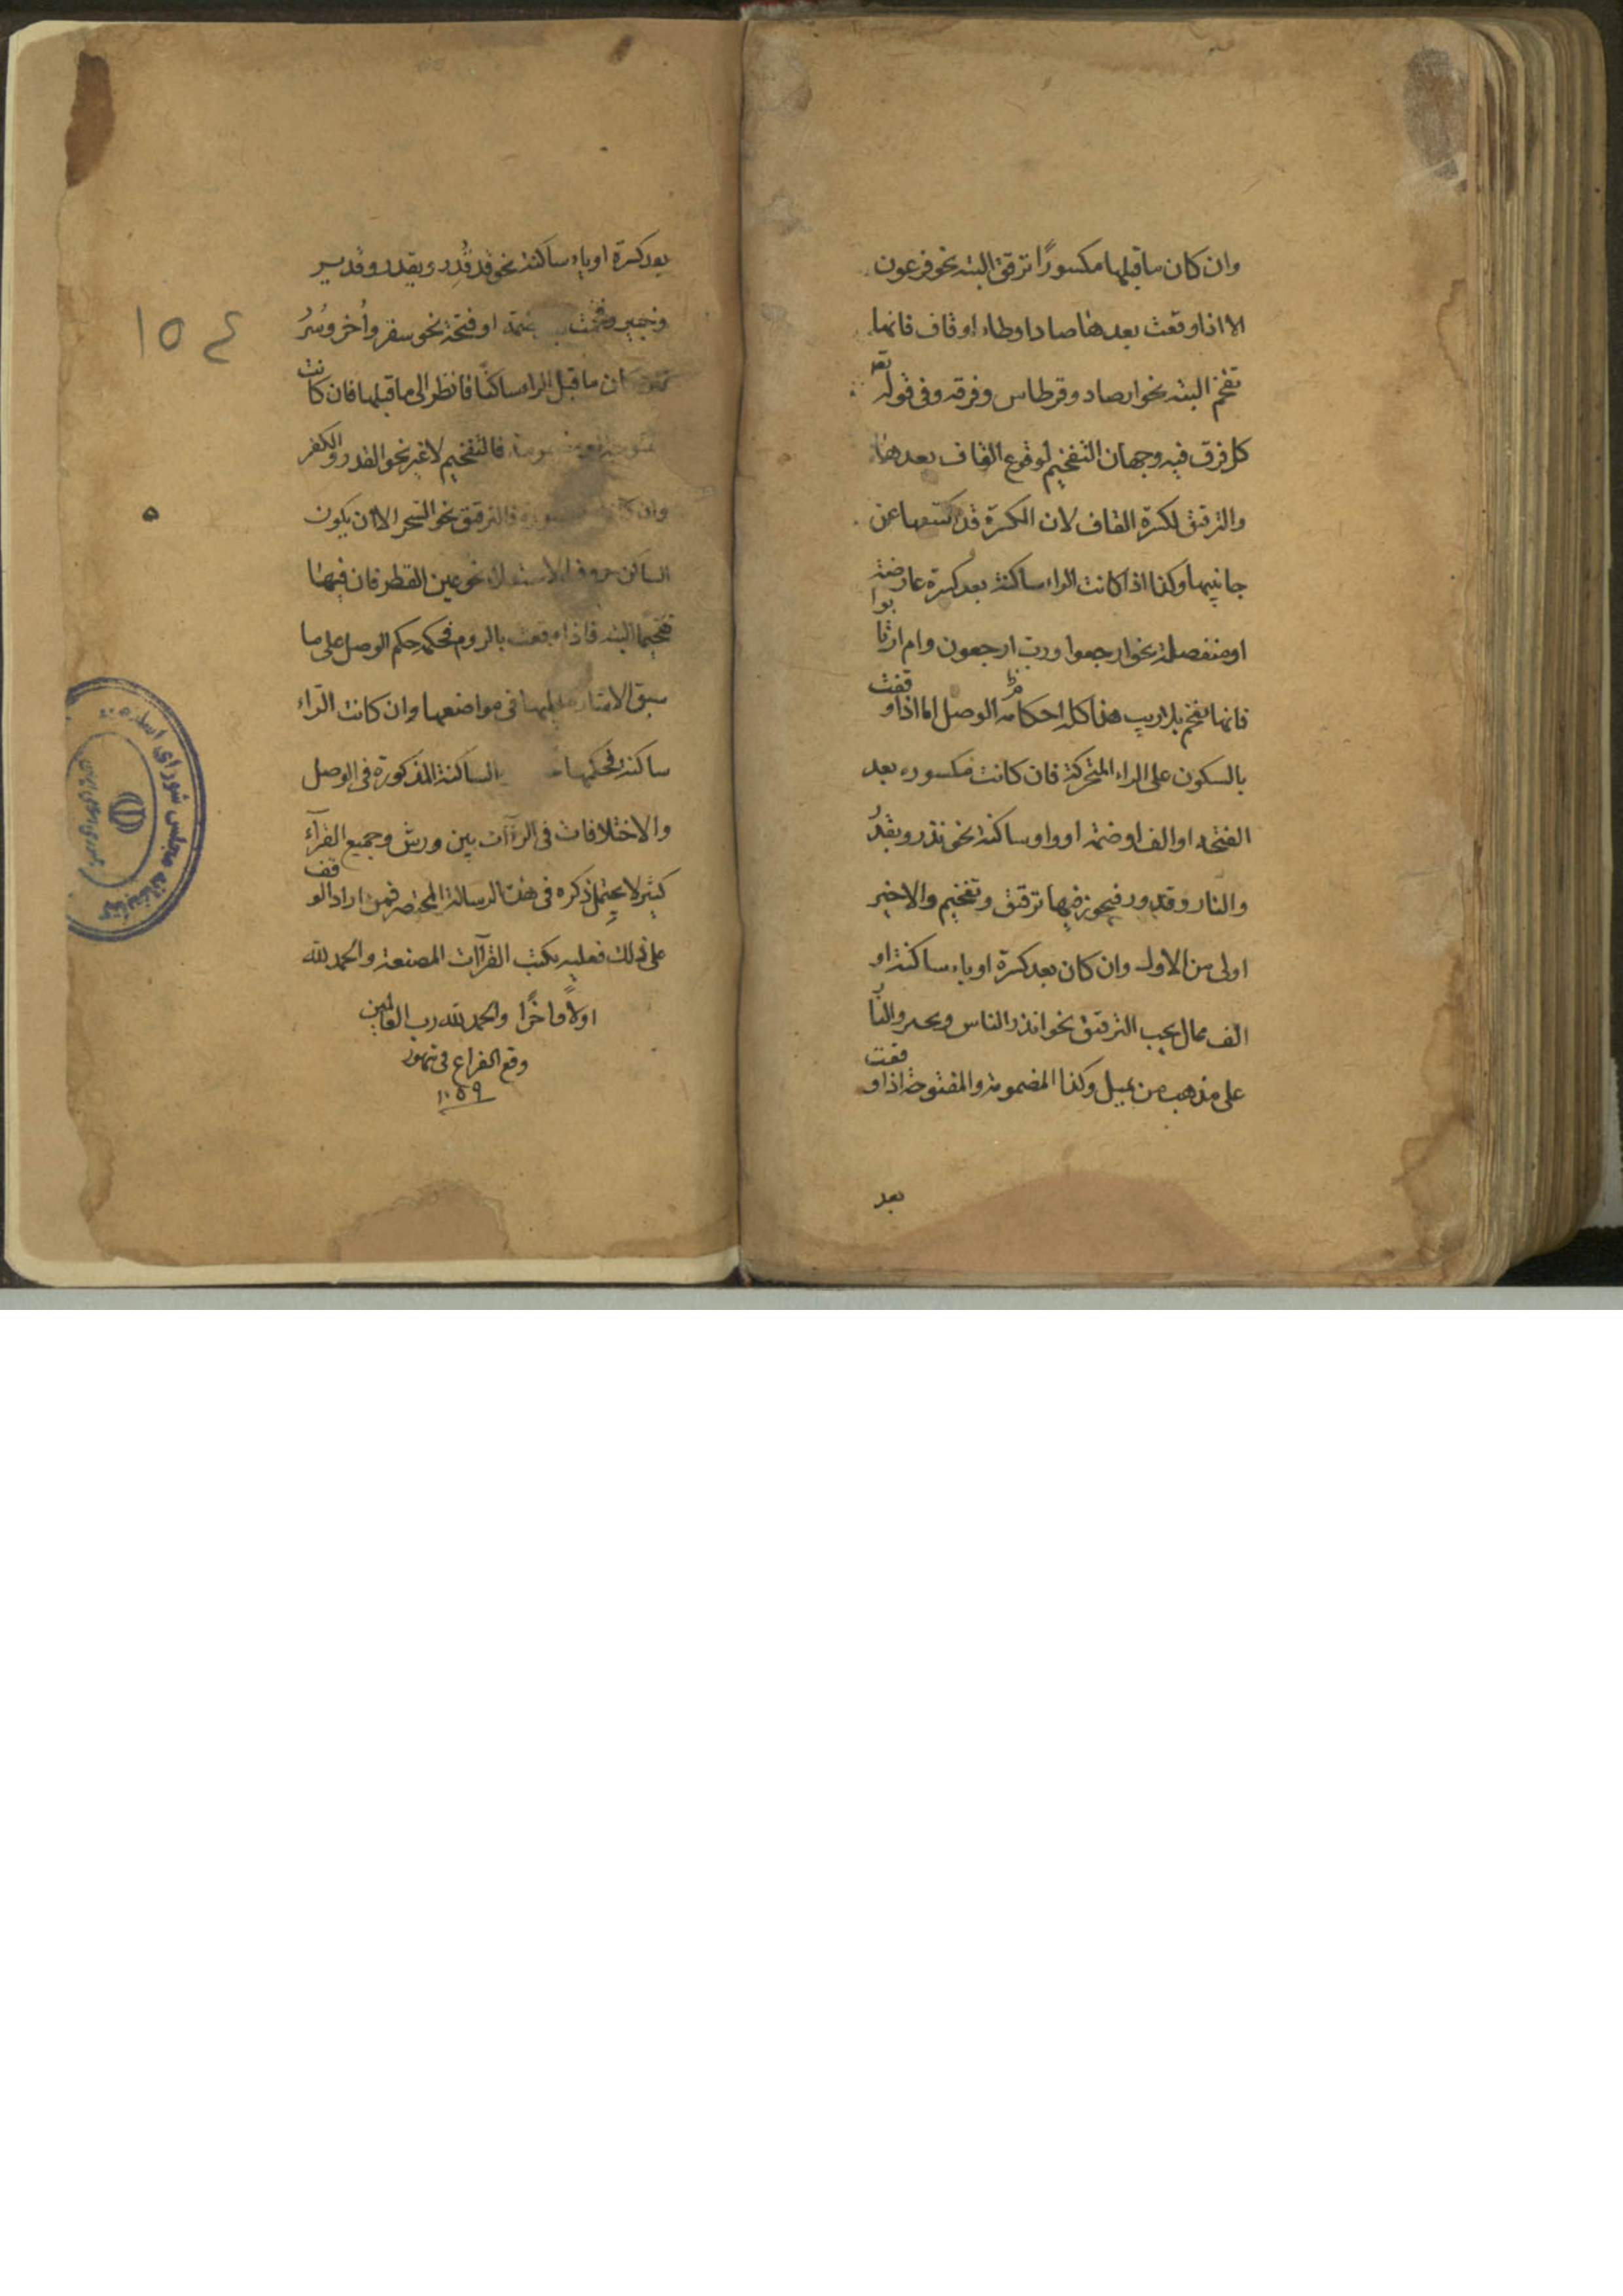 وان كان ماقبلها مكسورًا ترقق البته نحو فرعون
الا اذا وقعت بعدها صاد او طاء او قاف فانها
تفخم البته نحو ارصاد وقرطاس وفرقه وفى قوله تعه
كل فرق فيه وجهان التفخيم لوقوع القاف بعدها
والترقيق لكسرة القاف لان الكسرة قد اكتنفها عن
جانبيها وكذا اذا كانت الراء ساكنة بعد كسرة عارضة
او منفصلة نحو ارجعوا ورب ارجعون وام ارتابوا
فانها تفخم بلا ريب هذا كله احكامه الوصل اما اذا وقفت
بالسكون على الراء المتحركة فان كانت مكسوره بعد
الفتحه او الف او ضمة او واو ساكنة نحو نذر وبقدر
والنار وقدور فيجوز فيها ترقيق وتفخيم والاخير
اولى من الاول وان كان بعد كسرة او ياء ساكنة او
الف ممال يجب الترقيق نحو انذر الناس والنار
على مذهب من يميل وكذا المضمومة والمفتوحة اذا وقعت
بعد
بعد كسرة او ياء ساكنة نحو قد قُدِر ويقدر وقدير
وخبير وفخمت ضمة او فتحة نحو سقر واُخر وسُرُ
كان ماقبل الراء ساكنًا فانظر الى ماقبلها فان كانت
فالتفخيم لاغير نحو القدر والكفر
وان فالترقيق نحو السحر الا ان يكون
الساكن حروف الاستعلاء نحو عين القطر فان فيها
تفخيما البته فاذا وقعت بالروم فحكمه حكم الوصل على ما
سبق الاشارة اليها فى مواضعها وان كانت الراء
ساكنة فحكمها الساكنة المذكورة فى الوصل
والاختلافات فى الراآت بين ورش وجميع القرآء
كثير لا يحتمل ذكره فى هذه الرسالة المختصر فمن اراد الوقف
على ذلك فعليه بكتب القراآت المصنعة والحمد لله
اولًا واخرًا والحمد لله رب العالمين
وقع الفراغ فى شهور
١٠٥٩
١٥٤
٥
كتابخانه مجلس شوراى اسلامى